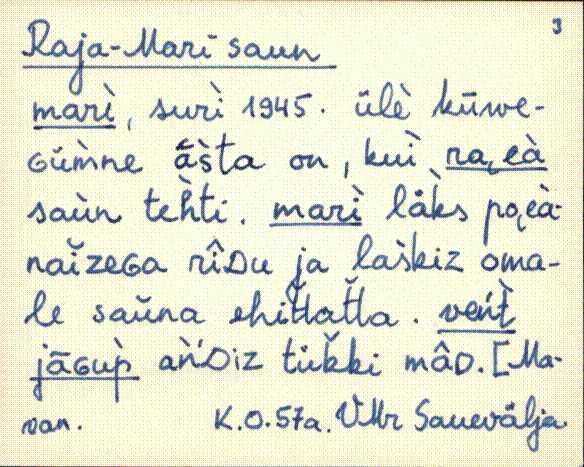 3
Raja-Mari saun
marì, surì 1945. ülè kūwe-
Güm̀ne ās̀ta on, kuì raꞔeà
saùn teh̀ti. marì låk̀s poꞔeà-
naĭzeGa rîDu ja las̀kiz oma-
le saŭna ehit̆lat̆la. veńt̀
jāGup̀ ań̀Diz tük̆ki mâD. [Ma-
van. K.O. 57a. VMr Sauevälja